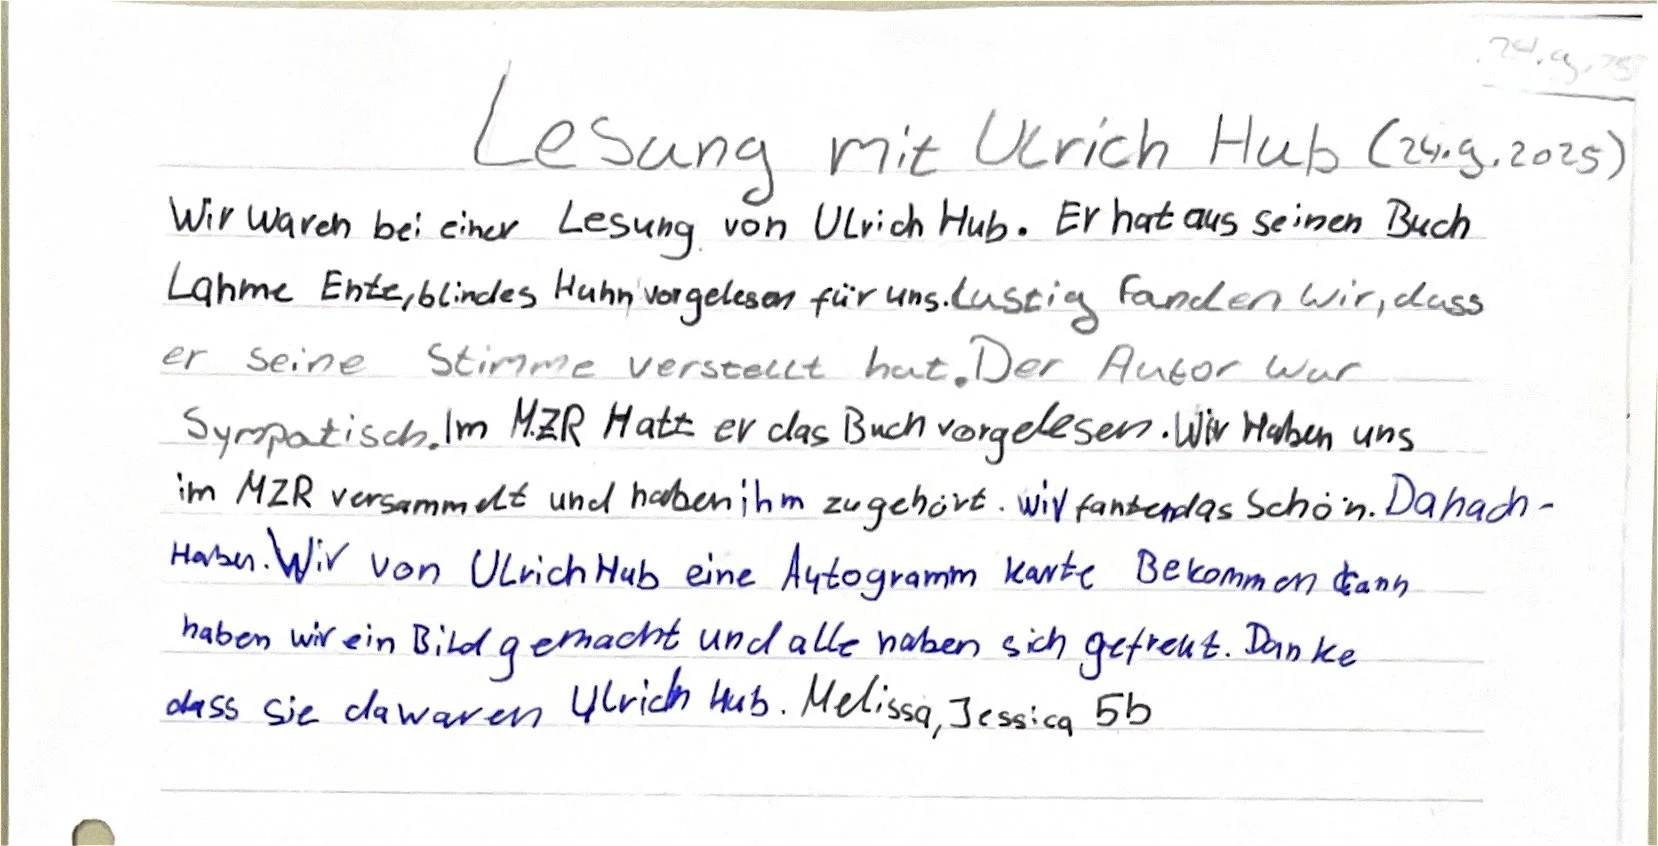 24.9.25
Lesung mit Ulrich Hub (24.9.2025)
Wir waren bei einer Lesung von Ulrich Hub. Er hat aus seinen Buch
Lahme Ente, blindes Huhn vorgelesen für uns. Lustig fanden wir, dass
er seine Stimme verstellt hat. Der Autor war
Sympatisch. Im MZR Hatt er das Buch vorgelesen. Wir Haben uns
im MZR versammelt und haben ihm zugehört. wir fanten das Schön. Danach-
Haben. Wir von Ulrich Hub eine Autogramm karte Bekommen dann
haben wir ein Bild gemacht und alle haben sich gefreut. Danke
dass sie da waren Ulrich Hub. Melissa, Jessica 5b